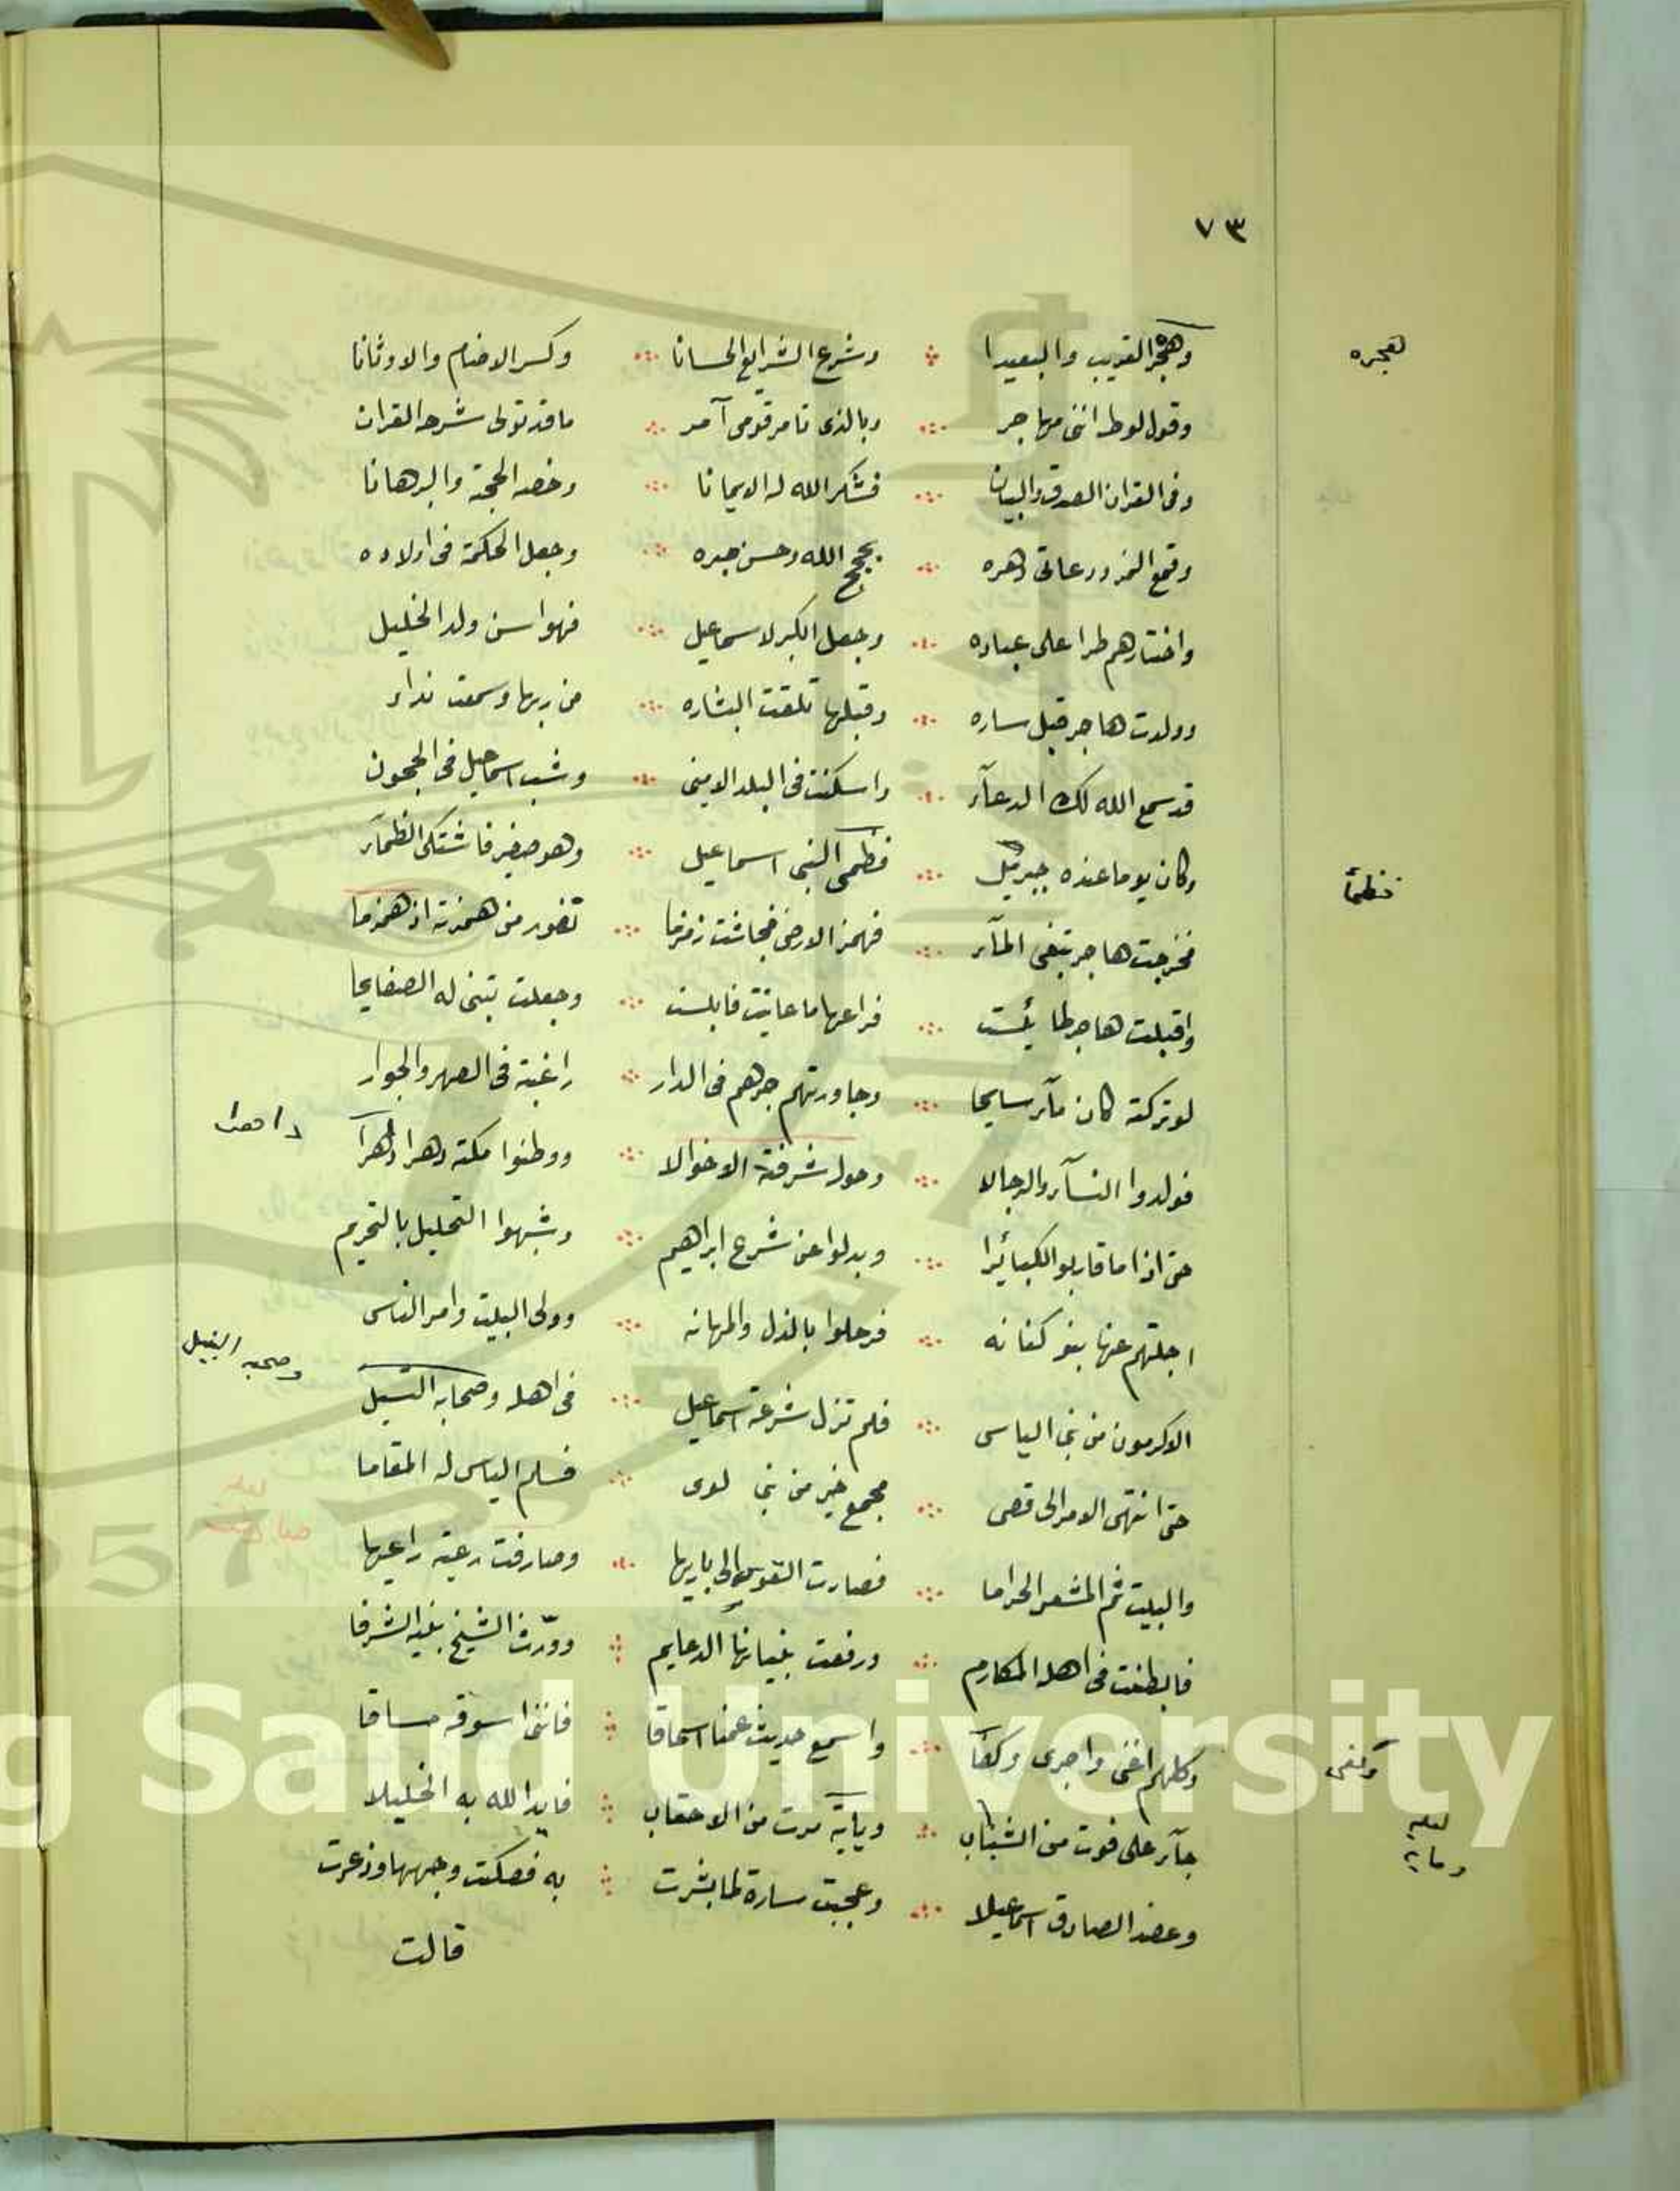 ٧٣
وهجر القريب والبعيدا ∴ وشرع الشرايع الحسانا ∴ وكسر الاصنام والاوثانا
لهجره
وقول لوط انني مهاجر ∴ وبالذى تامر قومى آمر ∴ ما قد تولى شرحه القران
وفى القران الصدق والبيان ∴ فشكر الله له الايمانا ∴ وخصه الحجة والبرهانا
وقمع النمرود عاتى دهره ∴ بحجج الله وحسن صبره ∴ وجعل الحكمة فى اولاده
واختارهم طرا على عباده ∴ وجعل الكبر لاسماعيل ∴ فهو اسن ولد الخليل
وولدت هاجر قبل ساره ∴ وقبلها تلقت البشاره ∴ من ربها وسمعت نداء
قد سمع الله لك الدعآء ∴ واسكنت فى البلد الامينى ∴ وشب اسماعيل فى الحجون
وكان يوما عنده جبريل ∴ فظمى النبى اسماعيل ∴ وهو صغير فاشتكى الظمآء
فظمأ
فخرجت هاجر تبغى المآء ∴ فهمز الارض فجاشت زمزما ∴ تفور من همزته اذ همزما
واقبلت هاجر لما يئست ∴ فراعها ما عاينت فابلست ∴ وجعلت تبنى له الصفايحا
لو تركته كان مآء سايحا ∴ وجاورتهم جرهم فى الدار ∴ راغبة فى الصهر والجوار
فولدوا النسآء والرجالا ∴ وحول شرفة الاخوالا ∴ ووطنوا مكة دهرا دهرا
حتى اذا ما قاربوا الكبائرا ∴ وبدلوا عن شرع ابراهيم ∴ وشبهوا التحليل بالتحريم
اجلتهم عنها بنو كنانه ∴ فرحلوا بالذل والمهانه ∴ وولى البيت وامر الناس
الاكرمون من بنى الياس ∴ فلم تزل شرعة اسماعيل ∴ فى اهله وصحابه السيل
وصحبه النيل
حتى انتهى الامر الى قصى ∴ مجمع خير من بنى لوى ∴ فسلم الياس له المقاما
والبيت ثم المشعر الحراما ∴ فصارت القوس الى باريها ∴ وصارفت رعية راعيها
لعله
صادفت
فابطنت فى اهله المكارم ∴ ورفعت بنيانها الدعايم ∴ وورّث الشيخ بنيه الشرفا
وكلهم اغنى واجرى وكفآ ∴ واسمع حديث عمنا اسحاقا ∴ فاننى اسوقه مساقا
وكفى
جآء على فوت من الشباب ∴ وياية مرت من الاحقاب ∴ فايد الله به الخليلا
لعله
ومايه
وعضد الصادق اسماعيلا ∴ وعجبت سارة لما بشرت ∴ به فصكت وجهها وذعرت
قالت
King Saud University
1957